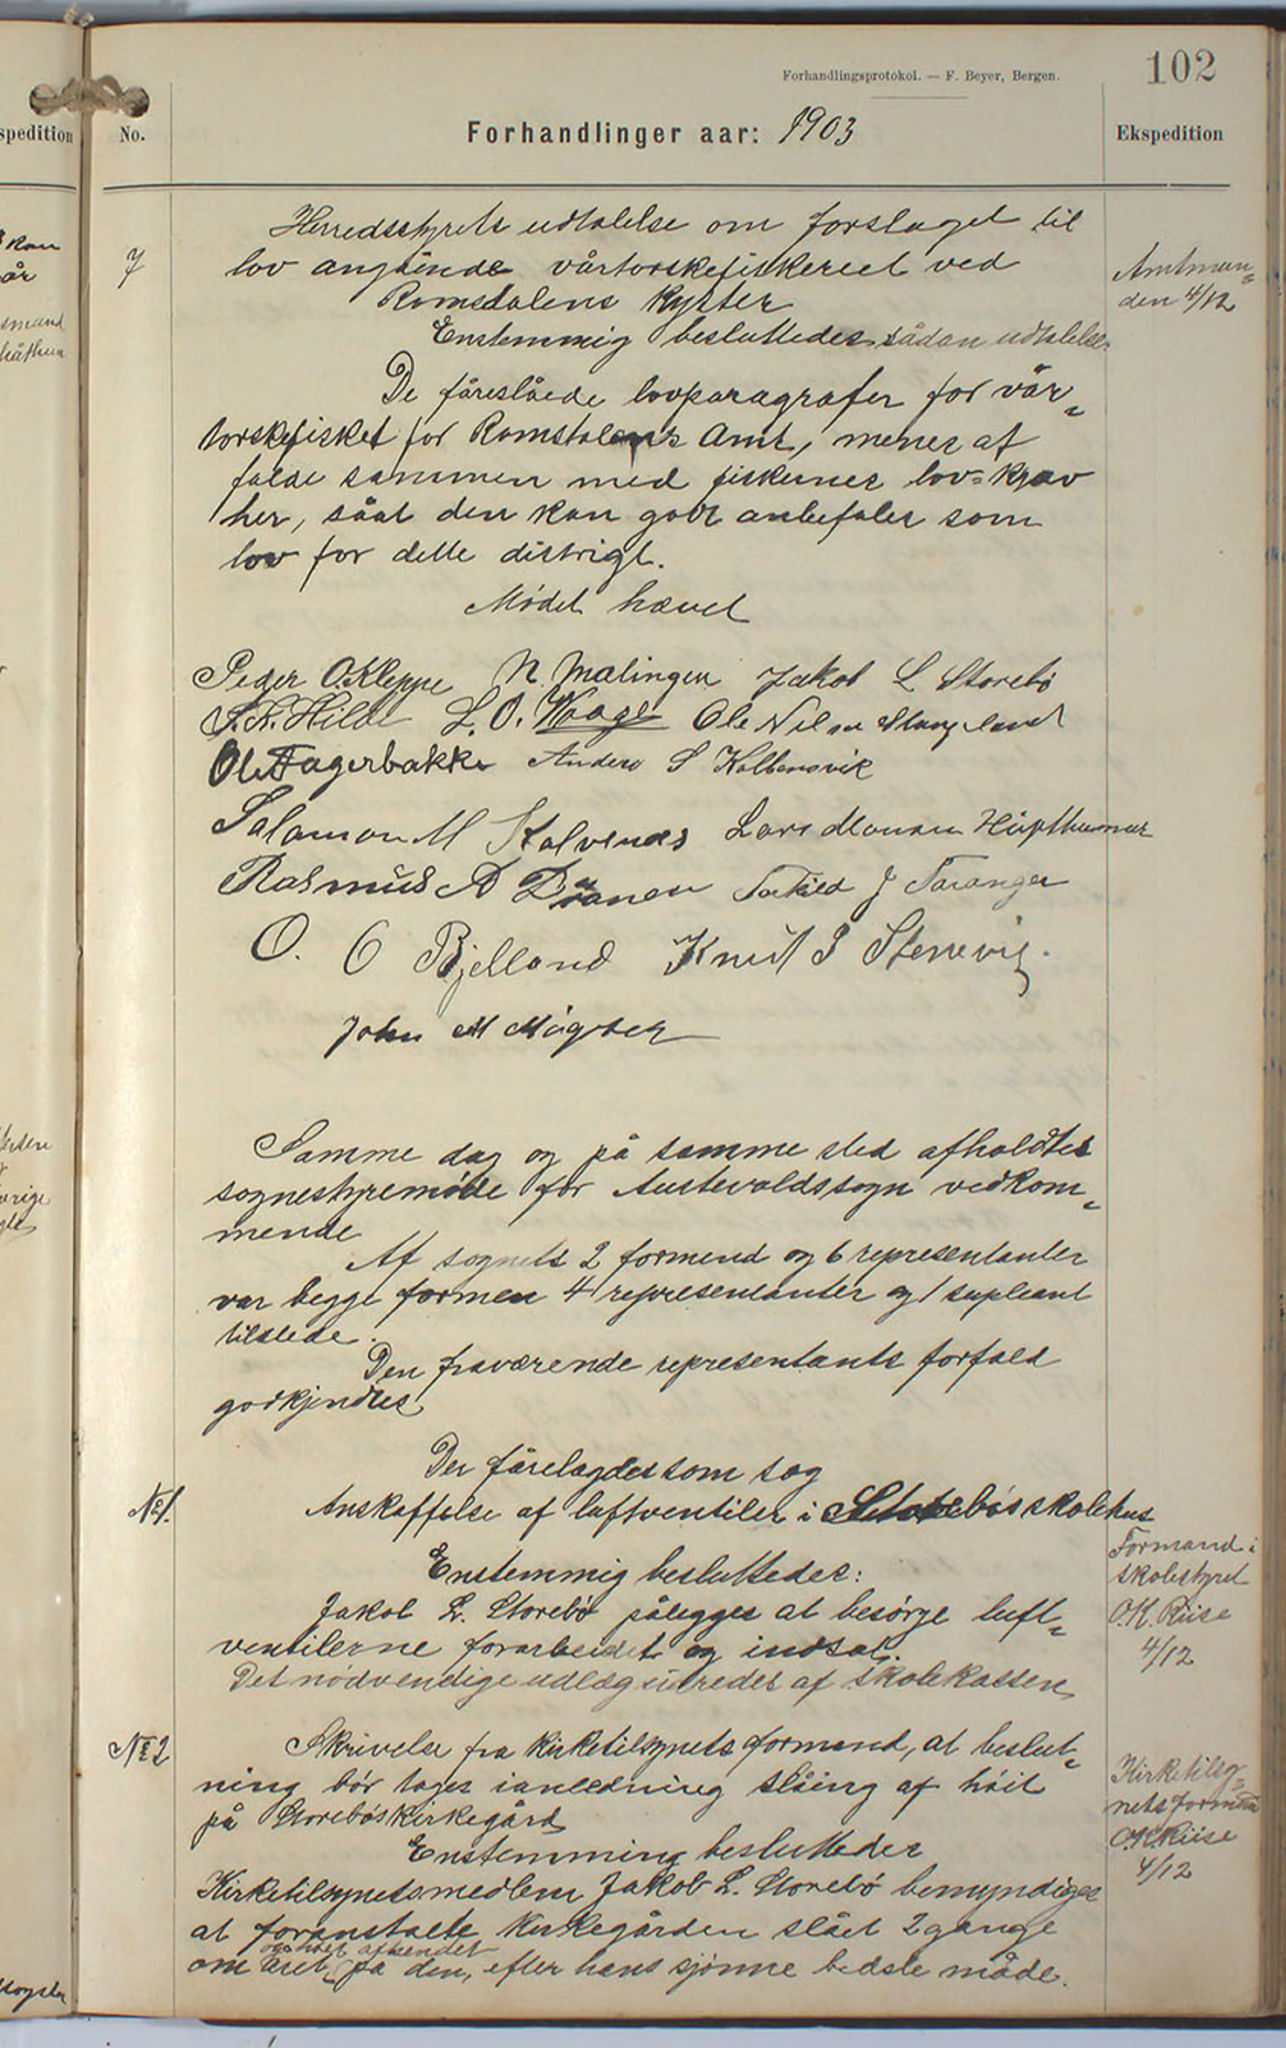 102
Forhandlingsprotokol. — F. Beyer, Bergen.
spedition
No.
Forhandlinger aar: 1903
Ekspedition
Herredsstyrets udtalelse om forslaget til
7
lov angående vårtorskefiskeriet ved
Romsdalens Kyster
Amtman=
den 4/12
Enstemmig besluttedes sådan udtalelse:
De föreslåede lovparagrafer for vår=
torskefisket for Romsdalens Amt, menes at
falde sammen med fiskernes lov=krav
her, såat den kan godt anbefales som
lov for dette distrigt.
Mödet hævet
Peder O. Kleppe N. Malingen Jakob L Storebö
S. N. Hilde L. O. Waage Ole Nilsen Stangeland
Ole Fagerbakke Anders S Kolbensvik
Salamon M Kalvenes Lars Monsen Hufthammer
Rasmus A Drönen Torkild J Taranger
O. O Bjelland Knut J Stenevig.
John M Mögster
Samme dag og på samme sted afholdtes
sognestyremöde for Austevoldssogn vedkom=
mende
Af sognets 2 formend og 6 representanter
var begge formen 4 representanter og 1 supleant
tilstede.
Den fraværende representants forfald
godkjendtes
Der förelagdes som sag
No 1.
Anskaffelse af luftventiler i Storebös skolehus
Formand i
skolestyret
O.K. Riise
4/12
Enstemmig besluttedes:
Jakob L. Storebö pålegges at besörge luft=
ventilerne forarbeidet og indsat.
Det nödvendige udlæg udredes af skolekassen
No 2
Skrivelse fra kirketilsynets formand, at beslut=
ning bör tages i anledning slåing af höit
på Storebös kirkegård
Kirketilsy=
nets formand
O.K. Riise
4/12
Enstemming besluttedes
Kirketilsynetsmedlem Jakob L. Storebö bemyndiges
at foranstalte kirkegården slået 2 gange
og höet afhendet
om året på den, efter hans sjönne bedste måde.